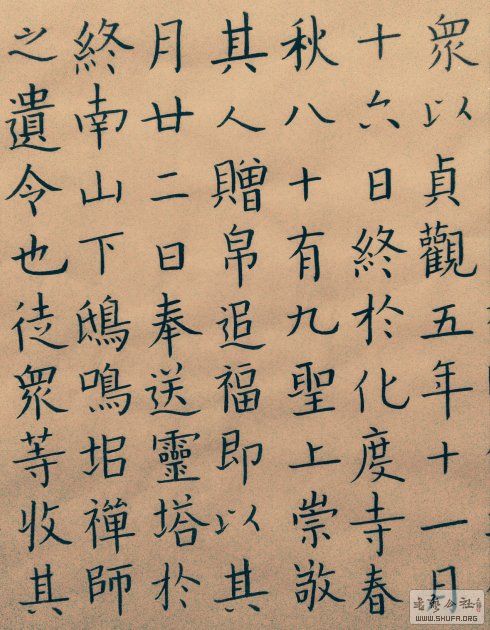 眾以貞觀五年十一月
十六日終於化度寺春
秋八十有九聖上崇敬
其人贈帛追福即以其
月廿二日奉送靈塔於
終南山下鴟鳴垖禪師
之遺令也徒眾等收其
书艺公社
WWW.SHUFA.ORG